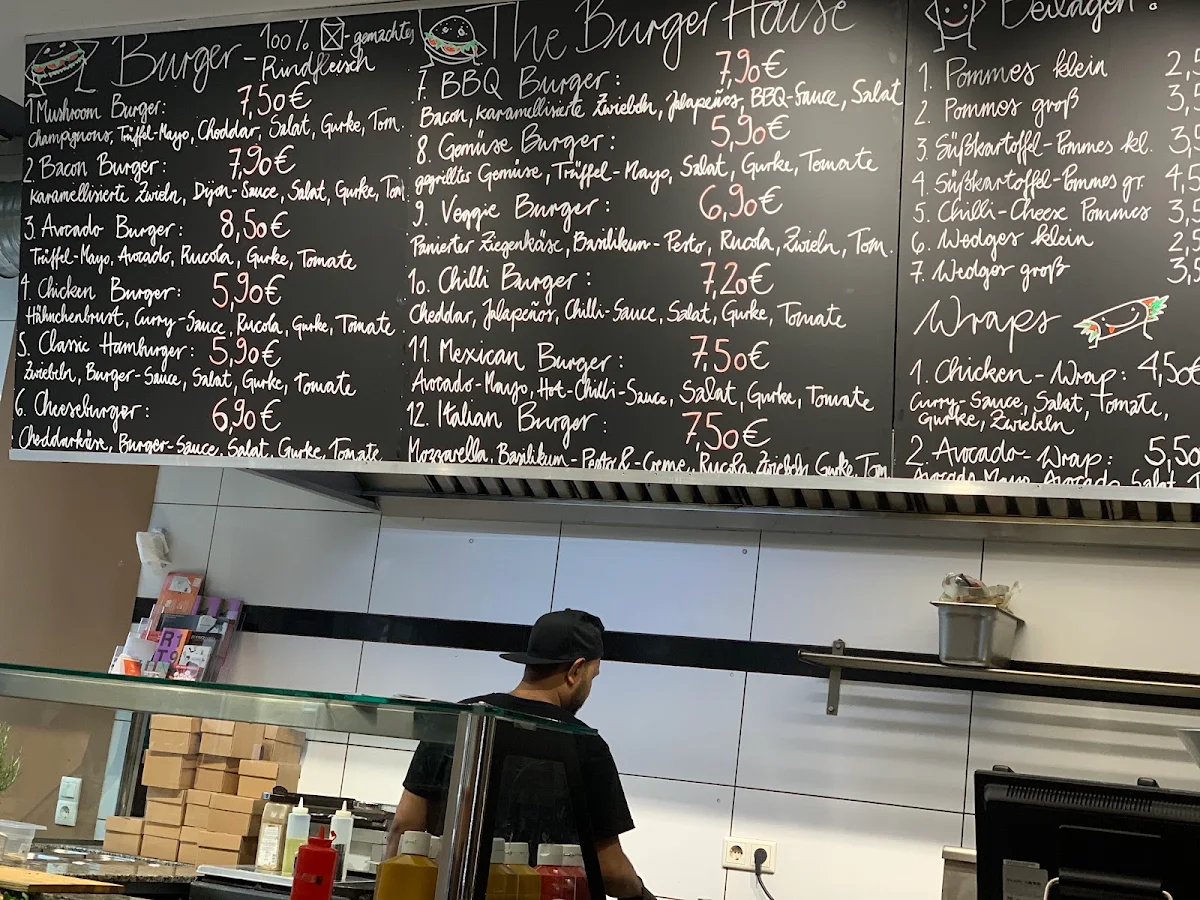 Burger - 100% -gemachtes
Rindfleisch
1 Mushroom Burger: 7,50€
Champignons, Trüffel-Mayo, Cheddar, Salat, Gurke, Tom.
2 Bacon Burger: 7,90€
karamellisierte Zwieln, Dijon-Sauce, Salat, Gurke, Tom
3. Avocado Burger: 8,50€
Trüffel-Mayo, Avocado, Rucola, Gurke, Tomate
4. Chicken Burger: 5,90€
Hähnchenbrust, Curry-Sauce, Rucola, Gurke, Tomate
5. Classic Hamburger: 5,90€
Zwiebeln, Burger-Sauce, Salat, Gurke, Tomate
6. Cheeseburger: 6,90€
Cheddarkäse, Burger-Sauce, Salat, Gurke, Tomate
The Burger House
7. BBQ Burger: 7,90€
Bacon, karamellisierte Zwiebeln, Jalapeños, BBQ-Sauce, Salat
8. Gemüse Burger: 5,90€
gegrilltes Gemüse, Trüffel-Mayo, Salat, Gurke, Tomate
9. Veggie Burger: 6,90€
Panierter Ziegenkäse, Basilikum-Pesto, Rucola, Zwieln, Tom.
10. Chilli Burger: 7,20€
Cheddar, Jalapeños, Chilli-Sauce, Salat, Gurke, Tomate
11. Mexican Burger: 7,50€
Avocado-Mayo, Hot-Chilli-Sauce, Salat, Gurke, Tomate
12. Italian Burger: 7,50€
Mozzarella, Basilikum-Pesto & -Creme, Rucola, Zwiebeln, Gurke, Tom.
Beilagen:
1. Pommes klein 2,5
2. Pommes groß 3,5
3. Süßkartoffel-Pommes kl. 3,5
4. Süßkartoffel-Pommes gr. 4,5
5. Chilli-Cheese Pommes 3,5
6. Wedges klein 2,5
7. Wedges groß 3,5
Wraps
1. Chicken-Wrap: 4,50€
Curry-Sauce, Salat, Tomate,
Gurke, Zwiebeln
2. Avocado-Wrap: 5,50
Avocado Mayo, Avocado, Salat, T